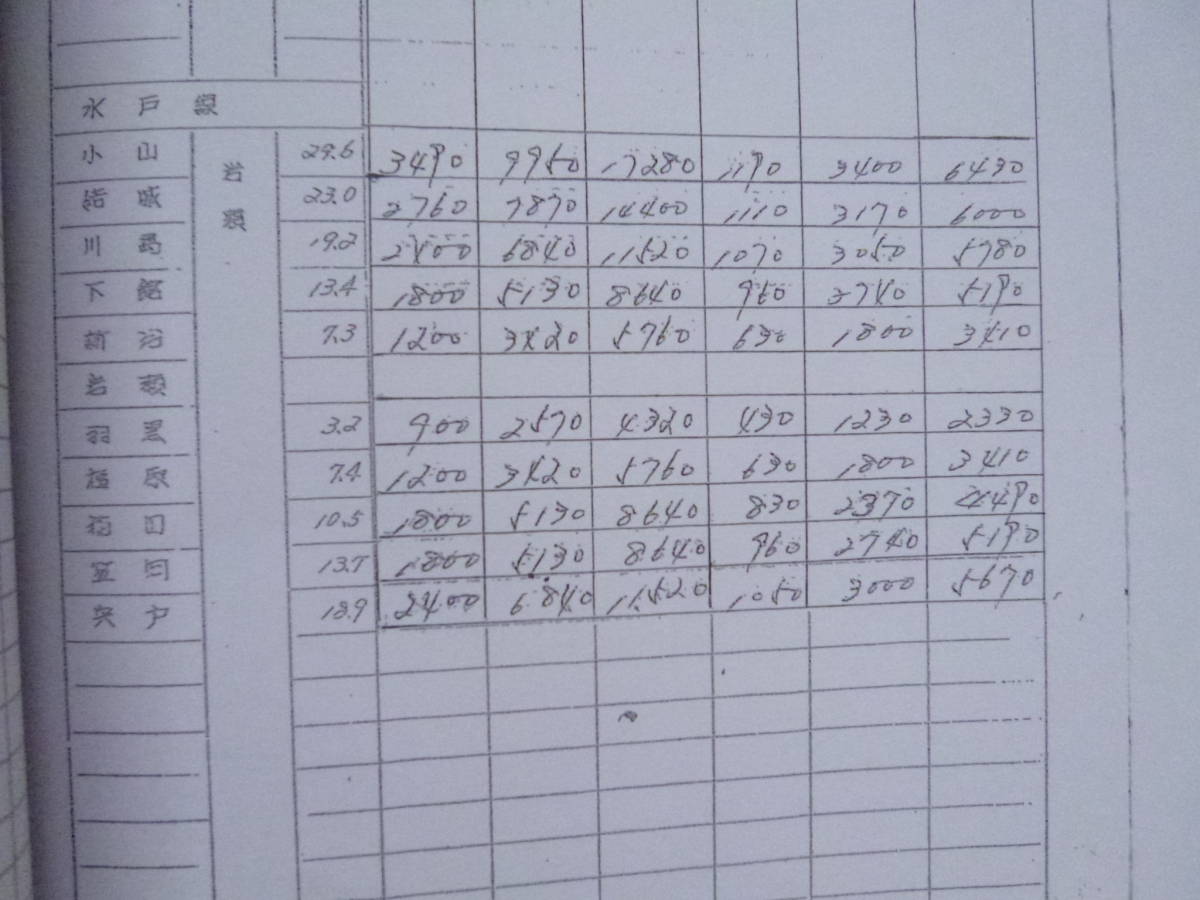 水戸線
小山 岩瀬 29.6 3490 9950 17280 1190 3400 6430
結城 23.0 2760 7870 14400 1110 3170 6000
川島 19.2 2400 6840 11520 1070 3050 5780
下館 13.4 1800 5130 8640 960 2740 5190
新治 7.3 1200 3420 5760 630 1800 3410
岩瀬
羽黒 3.2 900 2570 4320 430 1230 2330
福原 7.4 1200 3420 5760 630 1800 3410
稲田 10.5 1800 5130 8640 830 2370 4490
笠間 13.7 1800 5130 8640 960 2740 5190
宍戸 18.9 2400 6840 11520 1050 3000 5670